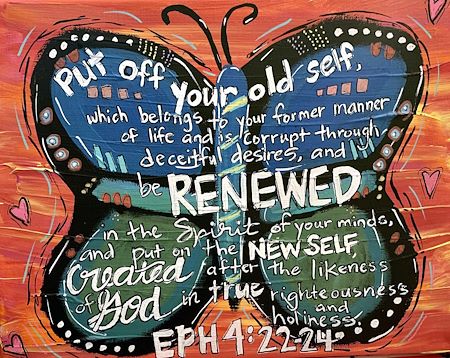 Put off your old self,
which belongs to your former manner
of life and is corrupt through
deceitful desires, and
be RENEWED
in the Spirit of your minds,
and put on the NEW SELF,
Created after the likeness
of God in true righteousness
and
holiness.
EPH 4:22-24